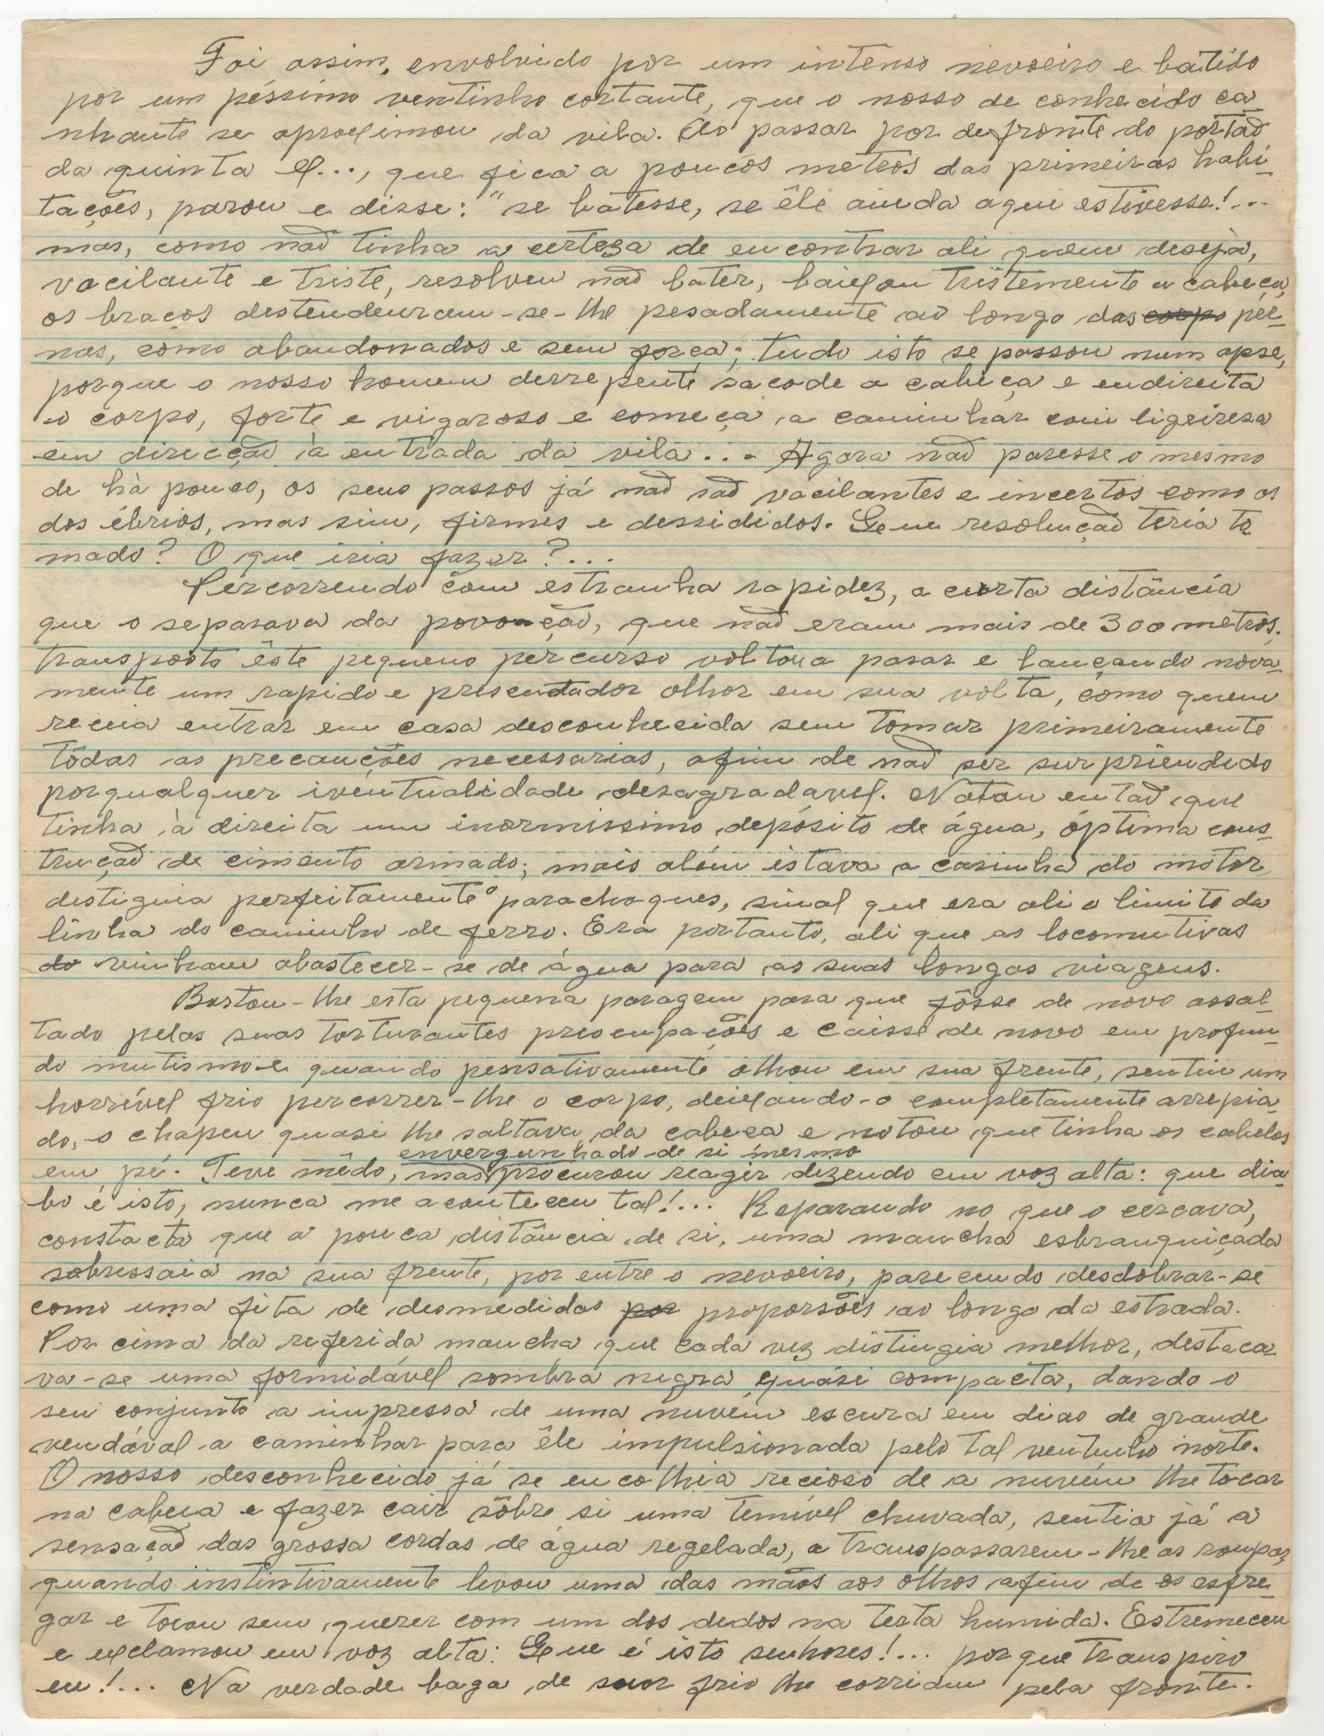 Foi assim, envolvido por um intenso nevoeiro e batido
por um péssimo ventinho cortante, que o nosso desconhecido ca-
nhante se aproximou da vila. Ao passar por defronte do portaõ
da quinta X..., que fica a poucos metros das primeiras habi-
tações, parou e disse: "se batesse, se êle ainda aqui estivesse!...
mas, como naõ tinha a certeza de encontrar ali quem deseja,
vacilante e triste, resolveu naõ bater, baixou tristemente a cabeça,
os braços destenderam-se-lhe pesadamente ao longo das corpo pér-
nas, como abandonados e sem força; tudo isto se passou num apse,
porque o nosso homem derrepente sacode a cabeça e endireita
o corpo, forte e vigoroso e começa a caminhar com ligeiresa
em direcçaõ à entrada da vila... Agora naõ paresse o mesmo
de hà pouco, os seus passos já naõ saõ vacilantes e incertos como os
dos ébrios, mas sim, firmes e dessididos. Que resoluçaõ teria to
mado? O que iria fazer?...
Percorrendo com estranha rapidez, a curta distância
que o separava da povoaçaõ, que naõ eram mais de 300 metros,
transposto êste pequeno percurso voltou a parar e lançando nova-
mente um rapido e prescutador olhor em sua volta, como quem
receia entrar em casa desconhecida sem tomar primeiramente
tôdas as precauções necessarias, afim de naõ ser surpriendido
porqualquer iventualidade desagradavel. Notou entaõ que
tinha à direita um inormissimo depósito de água, óptima cons-
truçaõ de cimento armado; mais além istava a casinha do motor,
destiguia perfeitamente o parachoques, sinal que era ali o limite da
linha do caminho de ferro. Era portanto, ali que as locomutivas
do vinham abastecer-se de água para as suas longas viagens.
Bastou-lhe esta pequena paragem para que fôsse de novo assal-
tado pelas suas torturantes preocupações e caisse de novo em profun-
do mutismo e quando pensativamente olhou em sua frente, sentiu um
horrível frio percorrer-lhe o corpo, deixando-o completamente arrepia-
do, o chapeu quasi lhe saltava da cabeça e notou que tinha os cabelos
envergunhado de si mesmo
em pé. Teve mêdo, mas procurou reagir dizendo em voz alta: que dia-
bo é isto, nunca me aconteceu tal!... Reparando no que o cercava,
constacta que a pouca distância de si, uma mancha esbranquiçada
sobressaia na sua frente, por entre o nevoeiro, parecendo desdobrar-se
como uma fita de desmedidas por proporsões ao longo da estrada.
Por cima da referida mancha que cada vez distingia melhor, destaca
va-se uma formidável sombra negra quási compacta, dando o
seu conjunto a impressa de uma nuvém escura em dias de grande
vendával a caminhar para êle impulsionada pelo tal ventinho norte.
O nosso desconhecido já se encolhia recioso de a nuvém lhe tocar
na cabeça e fazer cair sôbre si uma temível chuvada, sentia já a
sensaçaõ das grossa cordas de água regelada, a transpassarem-lhe as roupas,
quando instintivamente levou uma das mãos aos olhos afim de os esfre-
gar e tocou sem querer com um dos dedos na testa humida. Estremeceu
e exclamou em voz alta: Que é isto senhores!... porque transpiro
eu!... Na verdade baga de suor frio lhe corriam pela fronte.